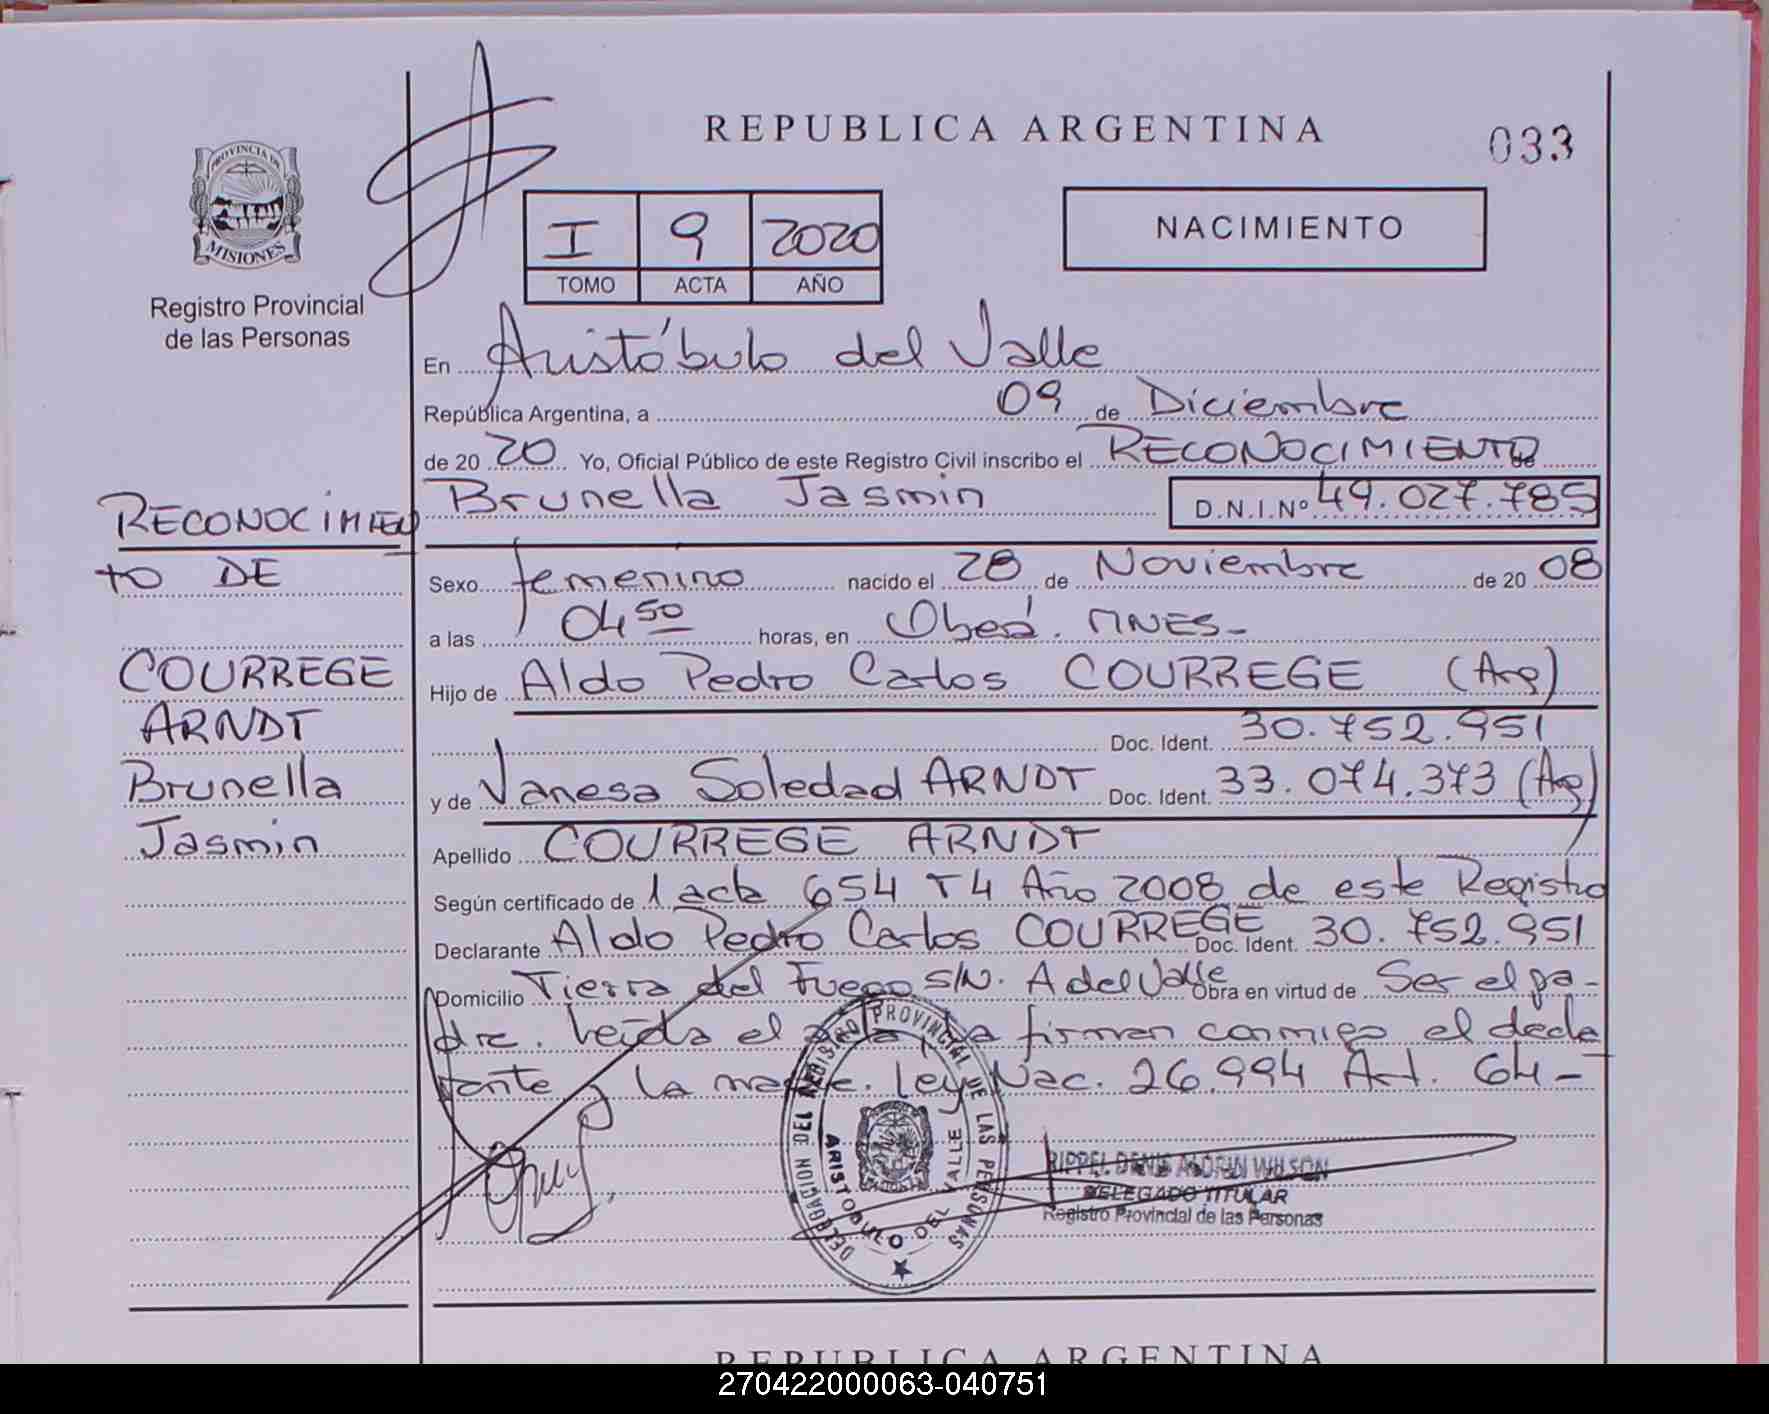 REPUBLICA ARGENTINA
033
PROVINCIA DE
MISIONES
Registro Provincial
de las Personas
I 9 2020
TOMO ACTA AÑO
NACIMIENTO
En Aristóbulo del Valle
República Argentina, a 09 de Diciembre
de 20 20 Yo, Oficial Público de este Registro Civil inscribo el RECONOCIMIENTO de
Brunella Jasmin D.N.I.Nº 49.027.785
Sexo femenino nacido el 28 de Noviembre de 20 08
a las 04 50 horas, en Oberá. MNES-
Hijo de Aldo Pedro Carlos COURREGE (Arg)
Doc. Ident. 30.752.951
y de Vanesa Soledad ARNDT Doc. Ident. 33.074.373 (Arg)
Apellido COURREGE ARNDT
Según certificado de 1 acta 654 T4 Año 2008 de este Registro
Declarante Aldo Pedro Carlos COURREGE Doc. Ident. 30.752.951
Domicilio Tierra del Fuego S/N. A del Valle Obra en virtud de Ser el pa-
dre. Leída el acta, la firman conmigo el decla
rante y la madre. Ley Nac. 26.994 Art. 64-
RECONOCIMIEN
to DE
COURREGE
ARNDT
Brunella
Jasmin
DELEGACION DEL REGISTRO PROVINCIAL DE LAS PERSONAS
ARISTOBULO DEL VALLE
RIPPEL DENIS ALDRIN WILSON
DELEGADO TITULAR
Registro Provincial de las Personas
REPUBLICA ARGENTINA
270422000063-040751